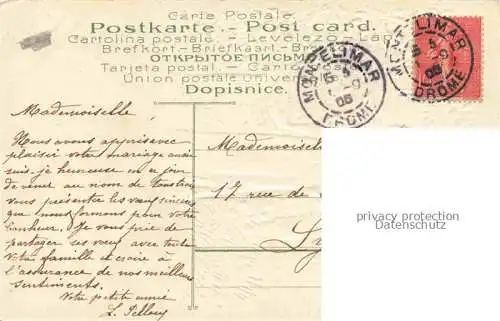 Carte Postale.
Postkarte - Post card.
Cartolina postale. - Levelezo - Lap
Brefkort - Briefkaart - Bre
ОТКРЫТОЕ ПИСЬМ
Tarjeta postal. - Cart
Union postale univers
Dopisnice.
MONTELIMAR
DROME
MONTELIMAR
DROME
Mademoiselle,
Nous avons appris avec
plaisir votre mariage aussi
suis-je heureuse en ce jour
de venir au nom de
vous présenter les vœux sincères
que nous formons pour votre
bonheur. Je vous prie de
partager ses vœux avec toute
votre famille et croire à
l'assurance de nos meilleurs
sentiments.
Votre petite amie
Mademoise
17 rue de
Ly
privacy protection
Datenschutz